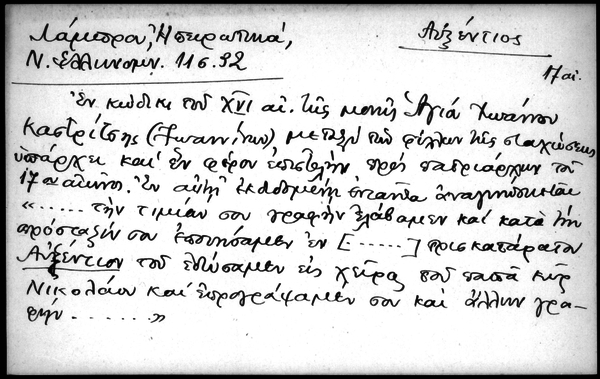 Λάμπρου, Ἠπειρωτικά,
Αὐξέντιος
Ν. Ἑλληνομν. 11 σ. 32
17 αἰ.
Ἐν κώδικι τοῦ XVI αἰ. τῆς μονῆς Ἁγίου Ἰωάννου
Καστρίτσης (Ἰωαννίνων) μεταξὺ τῶν φύλλων τῆς σταχώσεως
ὑπάρχει καὶ ἓν φέρον ἐπιστολὴν πρὸς πατριάρχην τοῦ
17ου αἰῶνος. Ἐν αὐτῇ ἐκδοθμένῃ ἐνταῦθα ἀναγινώσκεται
«..... τὴν τιμίαν σου γραφὴν ἐλάβαμεν καὶ κατὰ τὴν
πρόσταξίν σου ἐποιήσαμεν ἐν [......] τρισκατάρατον
Αὐξέντιον τοῦ ἐδώσαμεν εἰς χεῖρας τοῦ παπᾶ κὺρ
Νικολάου καὶ ἐπρογράψαμεν σου καὶ ἄλλην γρα-
φήν ....... »